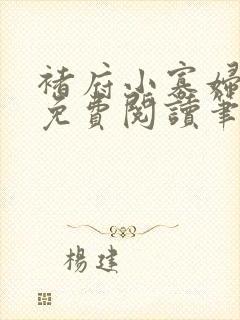 褚府小寡婦
免費閱讀筆
楊建